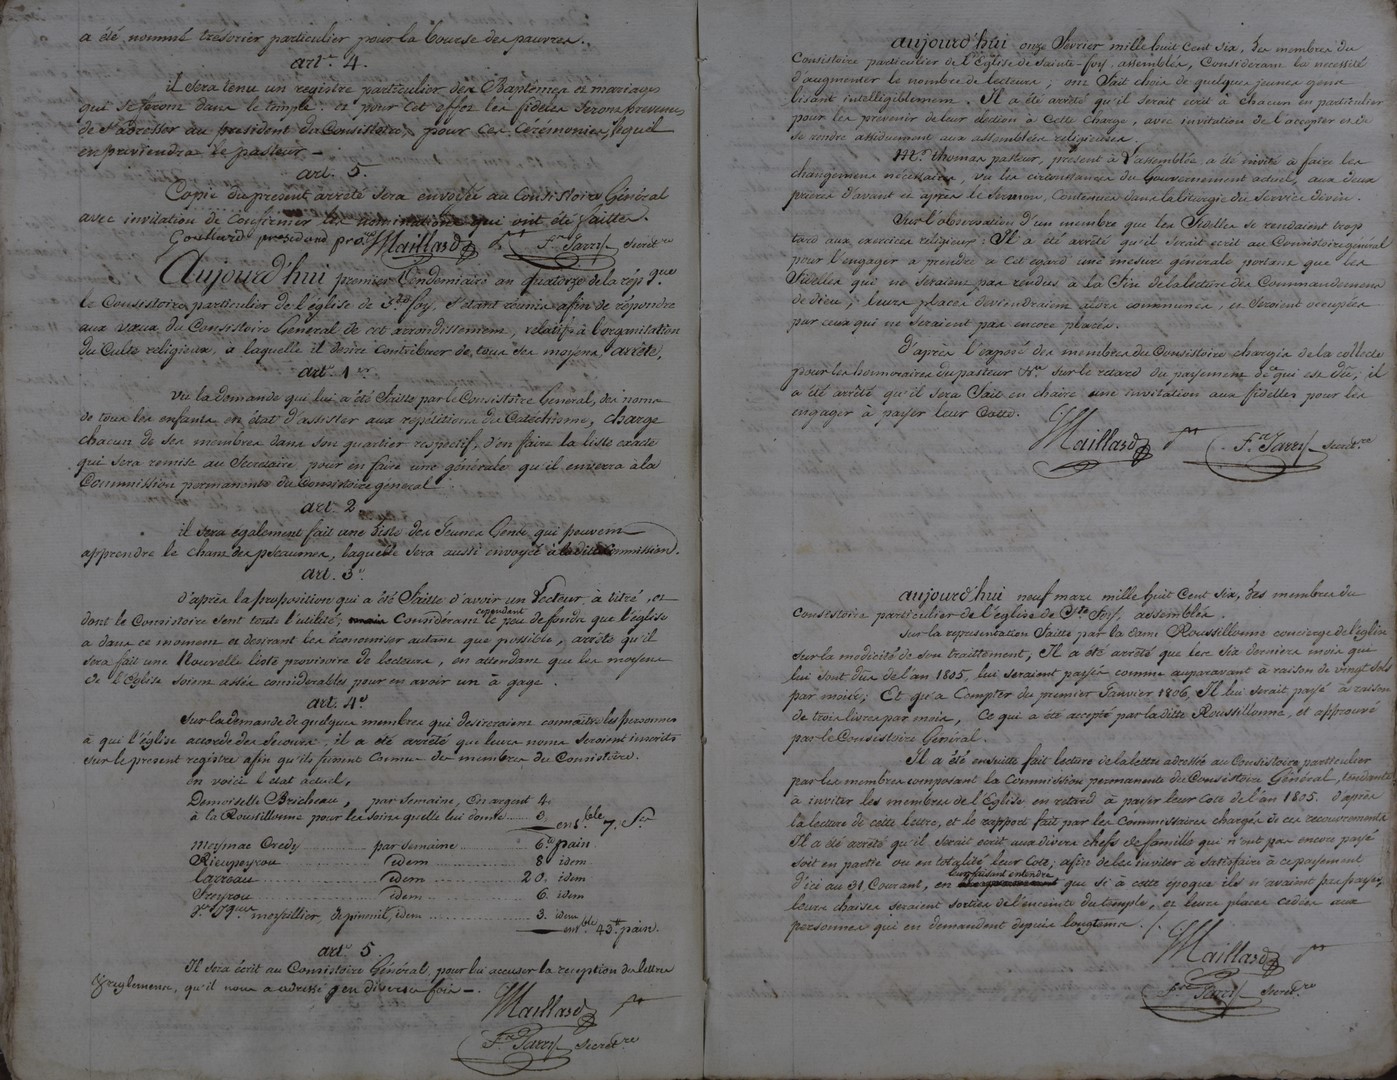 a été nommé trésorier particulier pour la bourse des pauvres.
art.e 4.
il sera tenu un registre particulier des Baptêmes et mariages
qui se feront dans le temple. et pour cet effet les fidèles seront prevenus
de s'adresser au président du Consistoire, pour ces cérémonies, lequel
en préviendra le pasteur —
art. 5.
Copie du présent arrêté sera envoyée au Consistoire Général
avec invitation de confirmer les nominations qui ont été faittes.
president pro.re Maillard F.ce Jarry Secret.re
Aujourd'hui premier Vendemiaire an quatorze de la rép.que
le Consistoire particulier de l'église de Ste foy, s'étant réunie afin de répondre
aux vœux du Consistoire Général de cet arrondissement, relatifs à l'organisation
du Culte religieux, a laquelle il desire contribuer de tous ses moyens, arrête,
art. 1er
Vu la demande qui lui a été faitte par le Consistoire Général, des noms
de tous les enfants en état d'assister aux répétitions du Catéchisme, charge
chacun de ses membres dans son quartier respectif, d'en faire la liste exacte
qui sera remise au Secretaire pour en faire une générale qu'il enverra à la
Commission permanente du Consistoire général
art. 2.
il sera également fait une liste des Jeunes Gens qui peuvent
apprendre le chant des pseaumes, laquelle sera aussi envoyée à la ditte Commission.
art. 3e.
d'après la proposition qui a été faitte d'avoir un Lecteur, à titré, et
dont le Consistoire sent toute l'utilité; mais cependant Considérant le peu de fonds que l'église
a dans ce moment et desirant les économiser autant que possible, arrête qu'il
sera fait une Nouvelle liste provisoire de lecteurs, en attendant que les moyens
de l'Eglise soient assés considerables pour en avoir un à gage.
art. 4e
Sur la demande de quelques membres qui desireraient connaître les personnes
à qui l'église accorde des Secours, il a été arrêté que leurs noms seraient inscrits
sur le present registre afin qu'ils fussent connus des membres du Consistoire.
en voici l'état actuel,
Demoiselle Bricheau, par semaine, en argent 4.
à la Roussillonne pour les soins qu'elle lui donne ...... 3. ens.ble 7. S.
meymac Oredy ............ par semaine .............. 6.tt pain
Rieupeyrou .................. idem .................. 8 idem
Larreau ..................... idem .................. 20. idem
Freyrou ..................... idem .................. 6. idem
idem .................. 3. idem
ens.ble 43.tt pain.
art. 5
Il sera écrit au Consistoire Général, pour lui accuser la reception des lettres
& reglements, qu'il nous a adressé en diverses fois —.
Maillard
F.ce Jarry Secret.re
aujourd'hui onze fevrier mille huit cent six, les membres du
Consistoire particulier de l'Eglise de Sainte-foy, assemblés, Considérant la nécessité
d'augmenter le nombre de lecteurs; ont fait choix de quelques jeunes gens
lisant intelligiblement. Il a été arrêté qu'il serait ecrit à chacun en particulier
pour les prévenir de leur élection à Cette charge, avec invitation de l'accepter et de
se rendre assiduement aux assemblées religieuses.
Mr. Thomas pasteur, présent à l'assemblée, a été invité à faire les
changemens nécessaires, vu les circonstances du Gouvernement actuel, aux deux
prières d'avant et après le Sermon, Contenues dans la liturgie du Service divin.
Sur l'observation d'un membre que les fidelles se rendaient trop
tard aux exercices religieux; Il a été arrêté qu'il serait ecrit au Consistoire général
pour l'engager à prendre à cet egard une mesure générale portant que les
fidelles qui ne seraient pas rendus à la fin de la lecture des Commandemens
de dieu; leurs places deviendraient alors communes, et seroient occupées
par ceux qui ne seraient pas encore placés.
D'après l'exposé des membres du Consistoire chargés de la collecte
pour les honoraires du pasteur &.a sur le retard du payement de ce qui est dû; il
a été arrêté qu'il sera fait en chaire une invitation aux fidelles pour les
engager à payer leur Cotte.
Maillard F.ce Jarry Secret.re
aujourd'hui neuf mars mille huit Cent six, les membres du
Consistoire particulier de l'église de Ste Foy, assemblés.
Sur la représentation faitte par la dame Roussillonne concierge de l'église
sur la modicité de son traittement; Il a été arrêté que les six derniers mois qui
lui sont dûs de l'an 1805, lui seraient payés comme auparavant à raison de vingt sols
par mois; Et qu'à Compter du premier Janvier 1806, Il lui serait payé à raison
de trois livres par mois, Ce qui a été accepté par la ditte Roussillonne, et approuvé
par le Consistoire Général.
Il a été ensuitte fait lecture de la lettre adressée au Consistoire particulier
par les membres composant la Commission permanente du Consistoire Général, tendante
à inviter les membres de l'Eglise en retard à payer leur Cote de l'an 1805. d'après
la lecture de cette lettre, et le rapport fait par les Commissaires chargés de ces recouvremens
Il a été arrêté qu'il serait écrit aux divers chefs de famille qui n'ont pas encore payé
soit en partie ou en totalité leur Cote, afin de les inviter à satisfaire à ce payement
d'ici au 31 Courant, en leur faisant entendre que si à cette époque ils n'avaient pas payé,
leurs chaises seraient sorties de l'enceinte du temple, et leurs places cédées aux
personnes qui en demandent depuis longtems.
Maillard
F.ce Jarry Secret.re